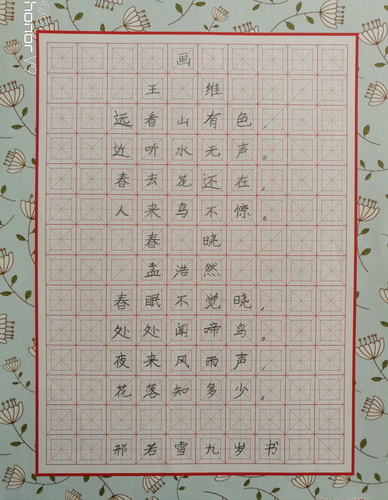 honor V9
画
王 维
远看山有色，
近听水无声。
春去花还在，
人来鸟不惊。
春 晓
孟浩然
春眠不觉晓，
处处闻啼鸟。
夜来风雨声，
花落知多少。
邢若雪九岁书